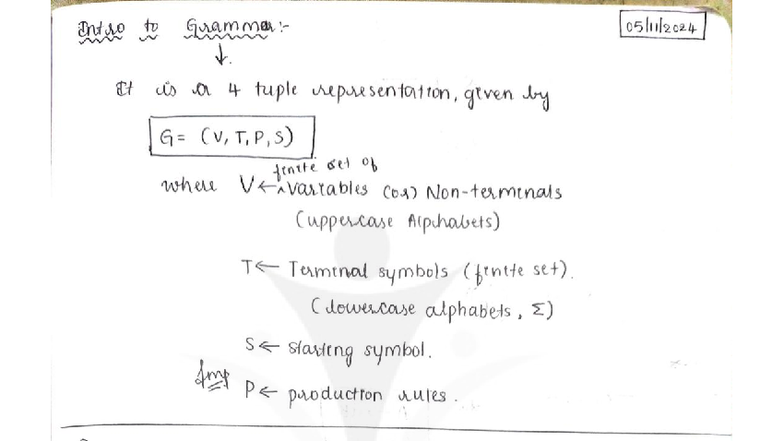 Intro to Grammar:-
05/11/2024
↓.
It is a 4 tuple representation, given by
G = (V, T, P, S)
finite set of
where V ← ^ variables (or) Non-terminals
(uppercase Alphabets)
T ← Terminal symbols (finite set).
(lowercase alphabets, Σ)
S ← starting symbol.
Imp P ← production rules.